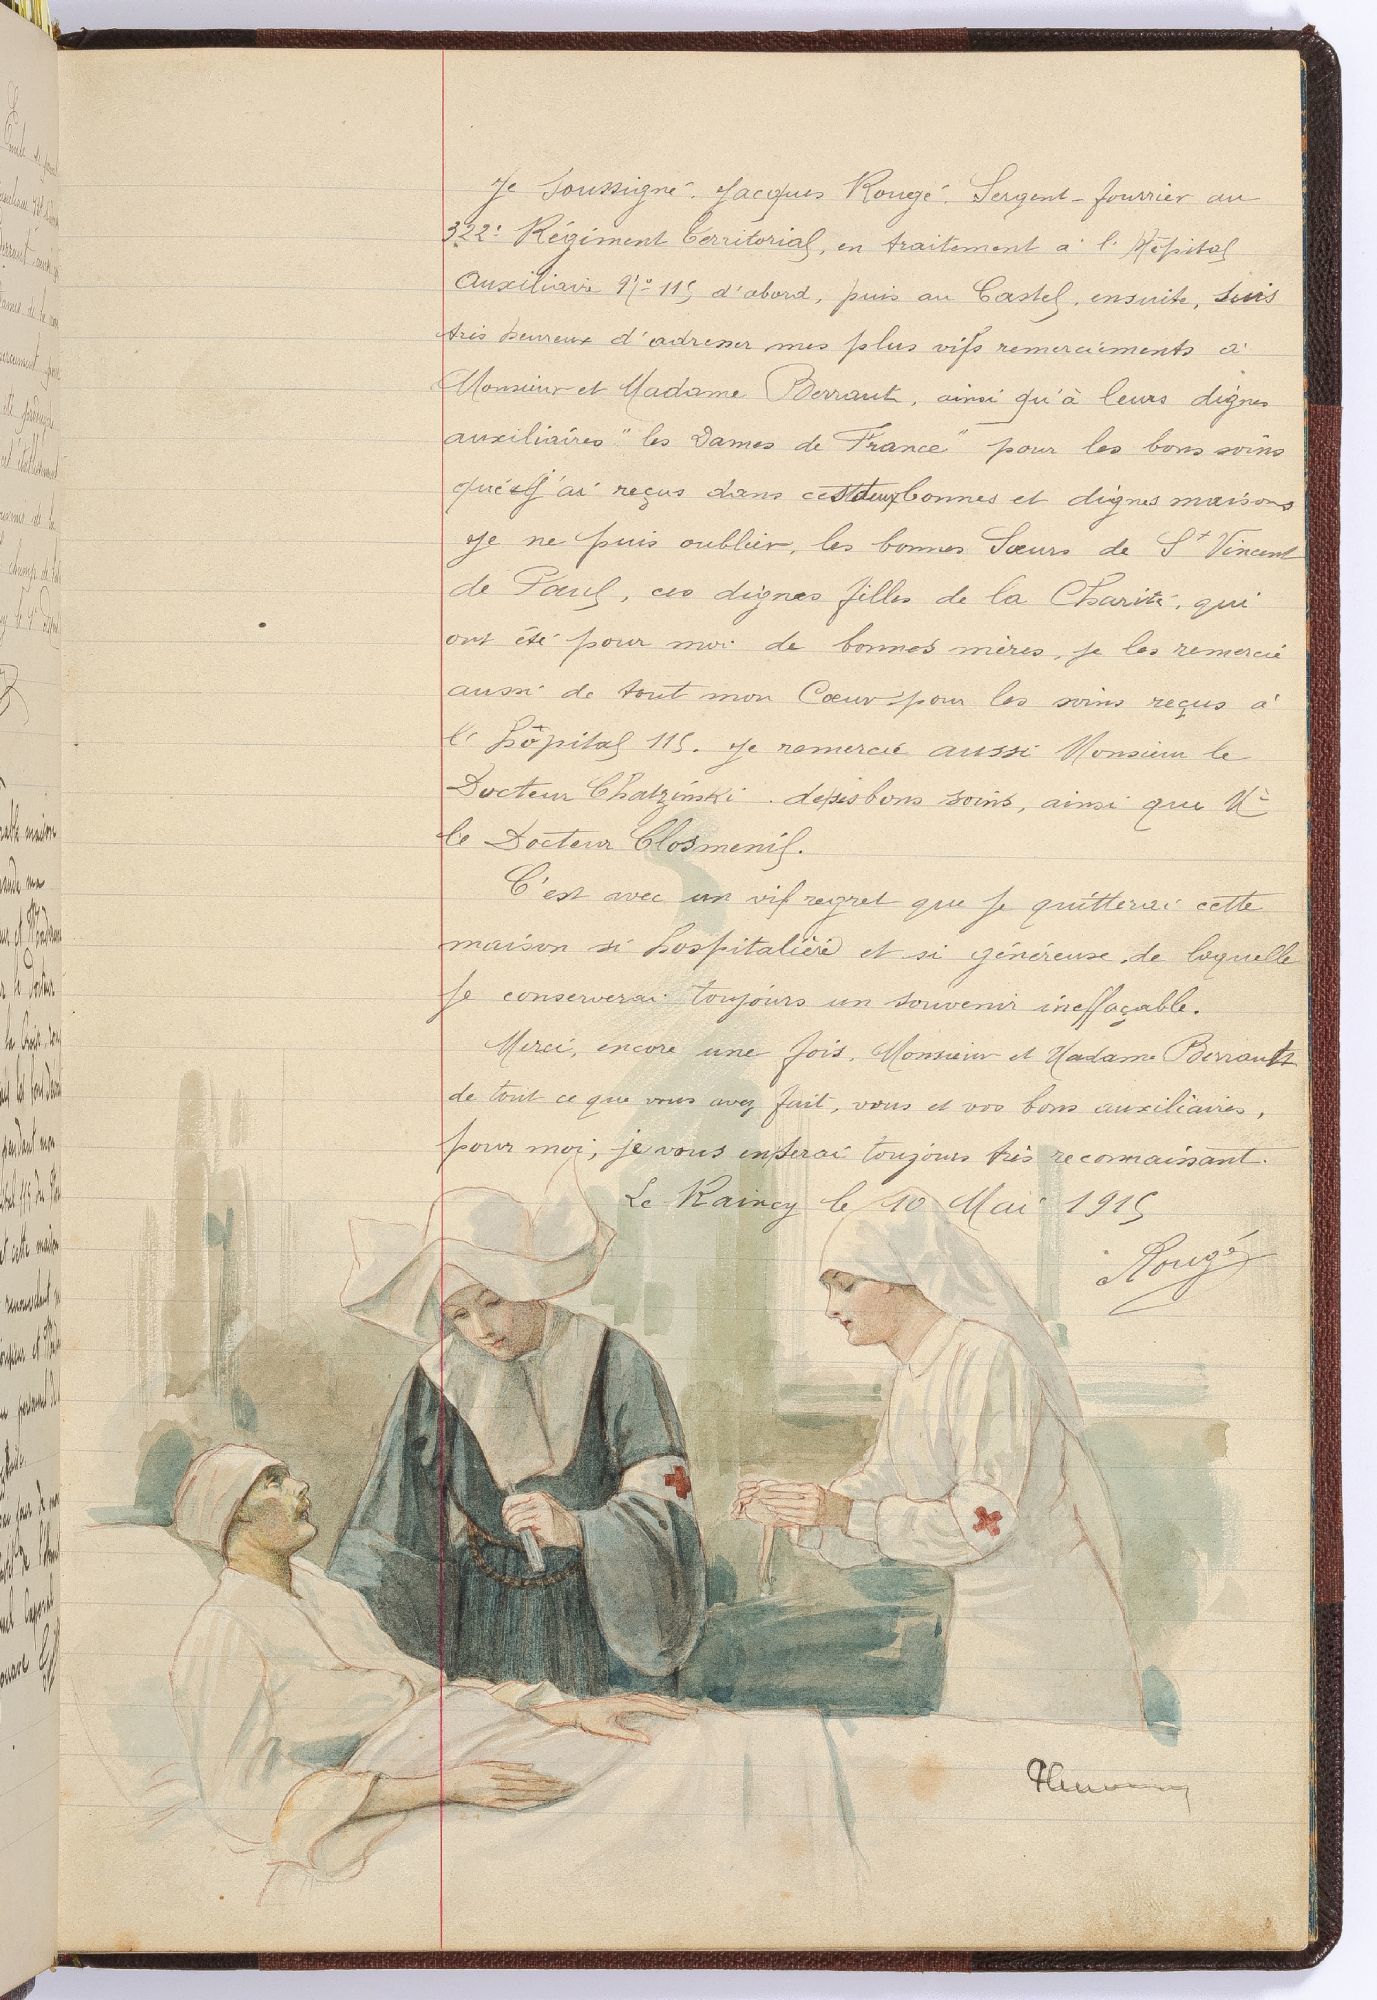 Je soussigné. Jacques Rougé. Sergent-fourrier au
322e Régiment Territorial, en traitement à l'Hôpital
Auxiliaire No 115 d'abord, puis au Castel, ensuite, suis
très heureux d'adresser mes plus vifs remerciements à
Monsieur et Madame Berraut, ainsi qu'à leurs dignes
auxiliaires "les Dames de France" pour les bons soins
que j'ai reçus dans ces deux bonnes et dignes maisons
Je ne puis oublier, les bonnes Sœurs de St Vincent
de Paul, ces dignes filles de la Charité, qui
ont été pour moi de bonnes mères, je les remercie
aussi de tout mon Cœur pour les soins reçus à
l'hôpital 115. Je remercie aussi Monsieur le
Docteur Chatzinski. de ses bons soins, ainsi que Mr
le Docteur Closmenil.
C'est avec un vif regret que je quitterai cette
maison si hospitalière et si généreuse, de laquelle
je conserverai toujours un souvenir ineffaçable.
Merci, encore une fois, Monsieur et Madame Berraut
de tout ce que vous avez fait, vous et vos bons auxiliaires,
pour moi, je vous en serai toujours très reconnaissant.
Le Raincy le 10 Mai 1915
Rougé